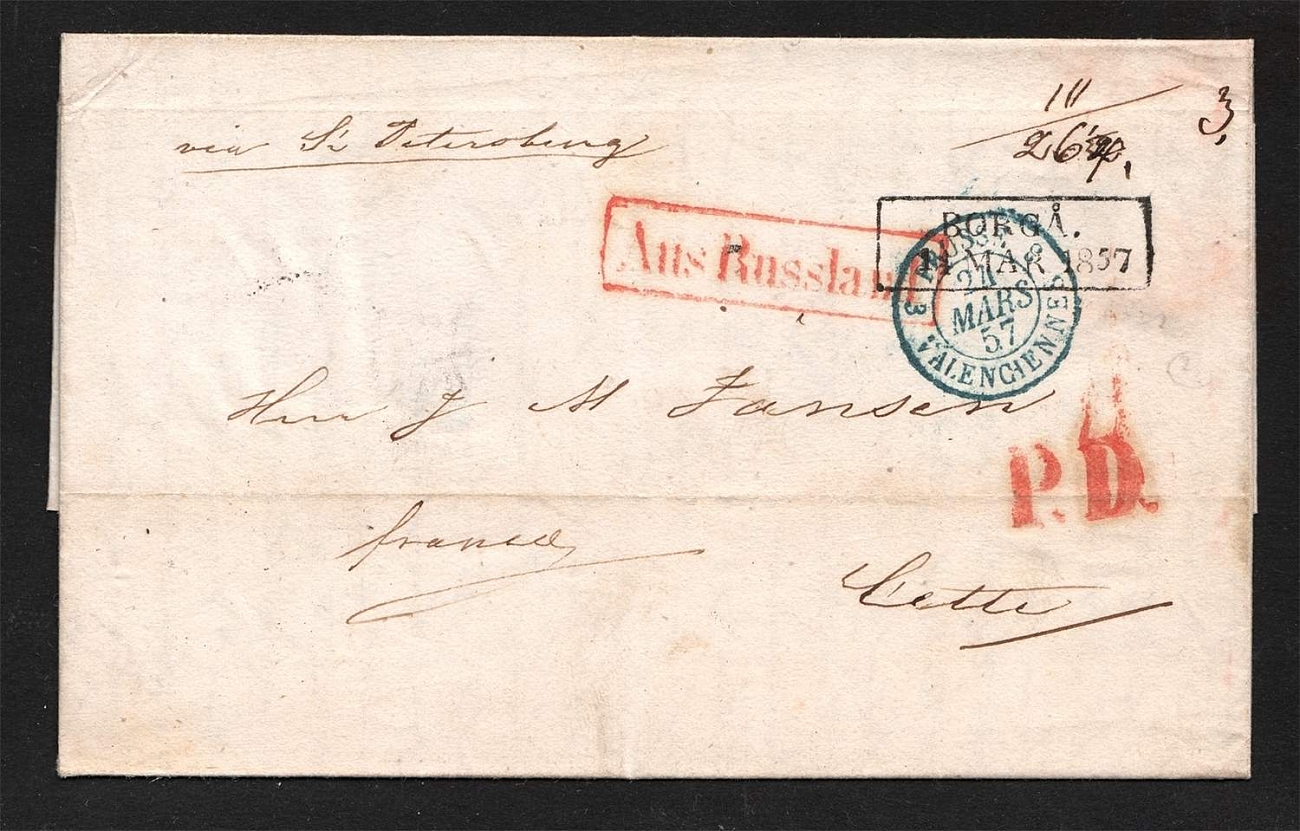 via St Petersburg
111
3,
Aus Russland
BORGÅ.
14 MAR 1857
PRUSSE 3
24
MARS
57
3 VALENCIENNES
Herr J M Jansen
P.D.
franco
Cette